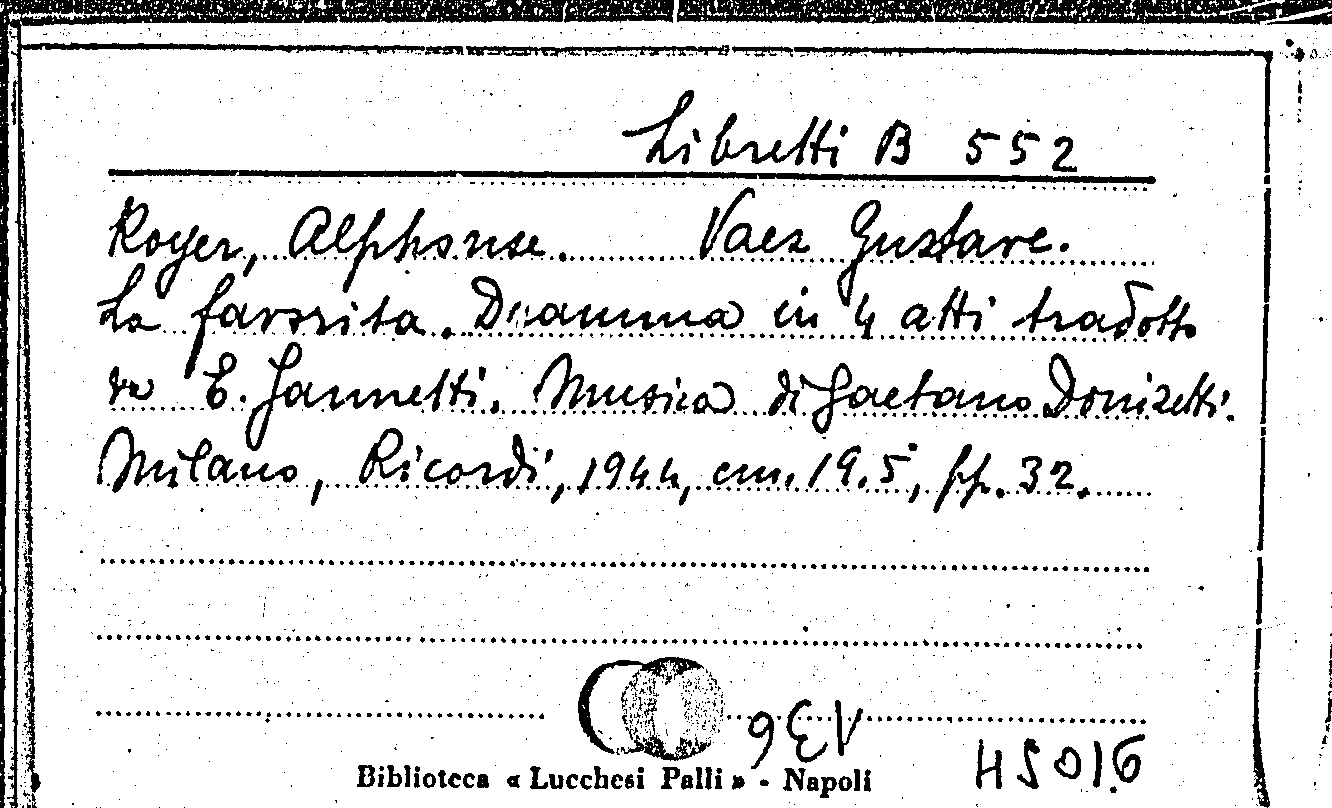 Libretti B 552
Royer, Alphonse. Vaez Gustave.
La favorita. Dramma in 4 atti tradotto
da E. Jannetti. Musica di Gaetano Donizetti.
Milano, Ricordi, 1944, cm. 19.5, pp. 32.
Biblioteca « Lucchesi Palli » - Napoli